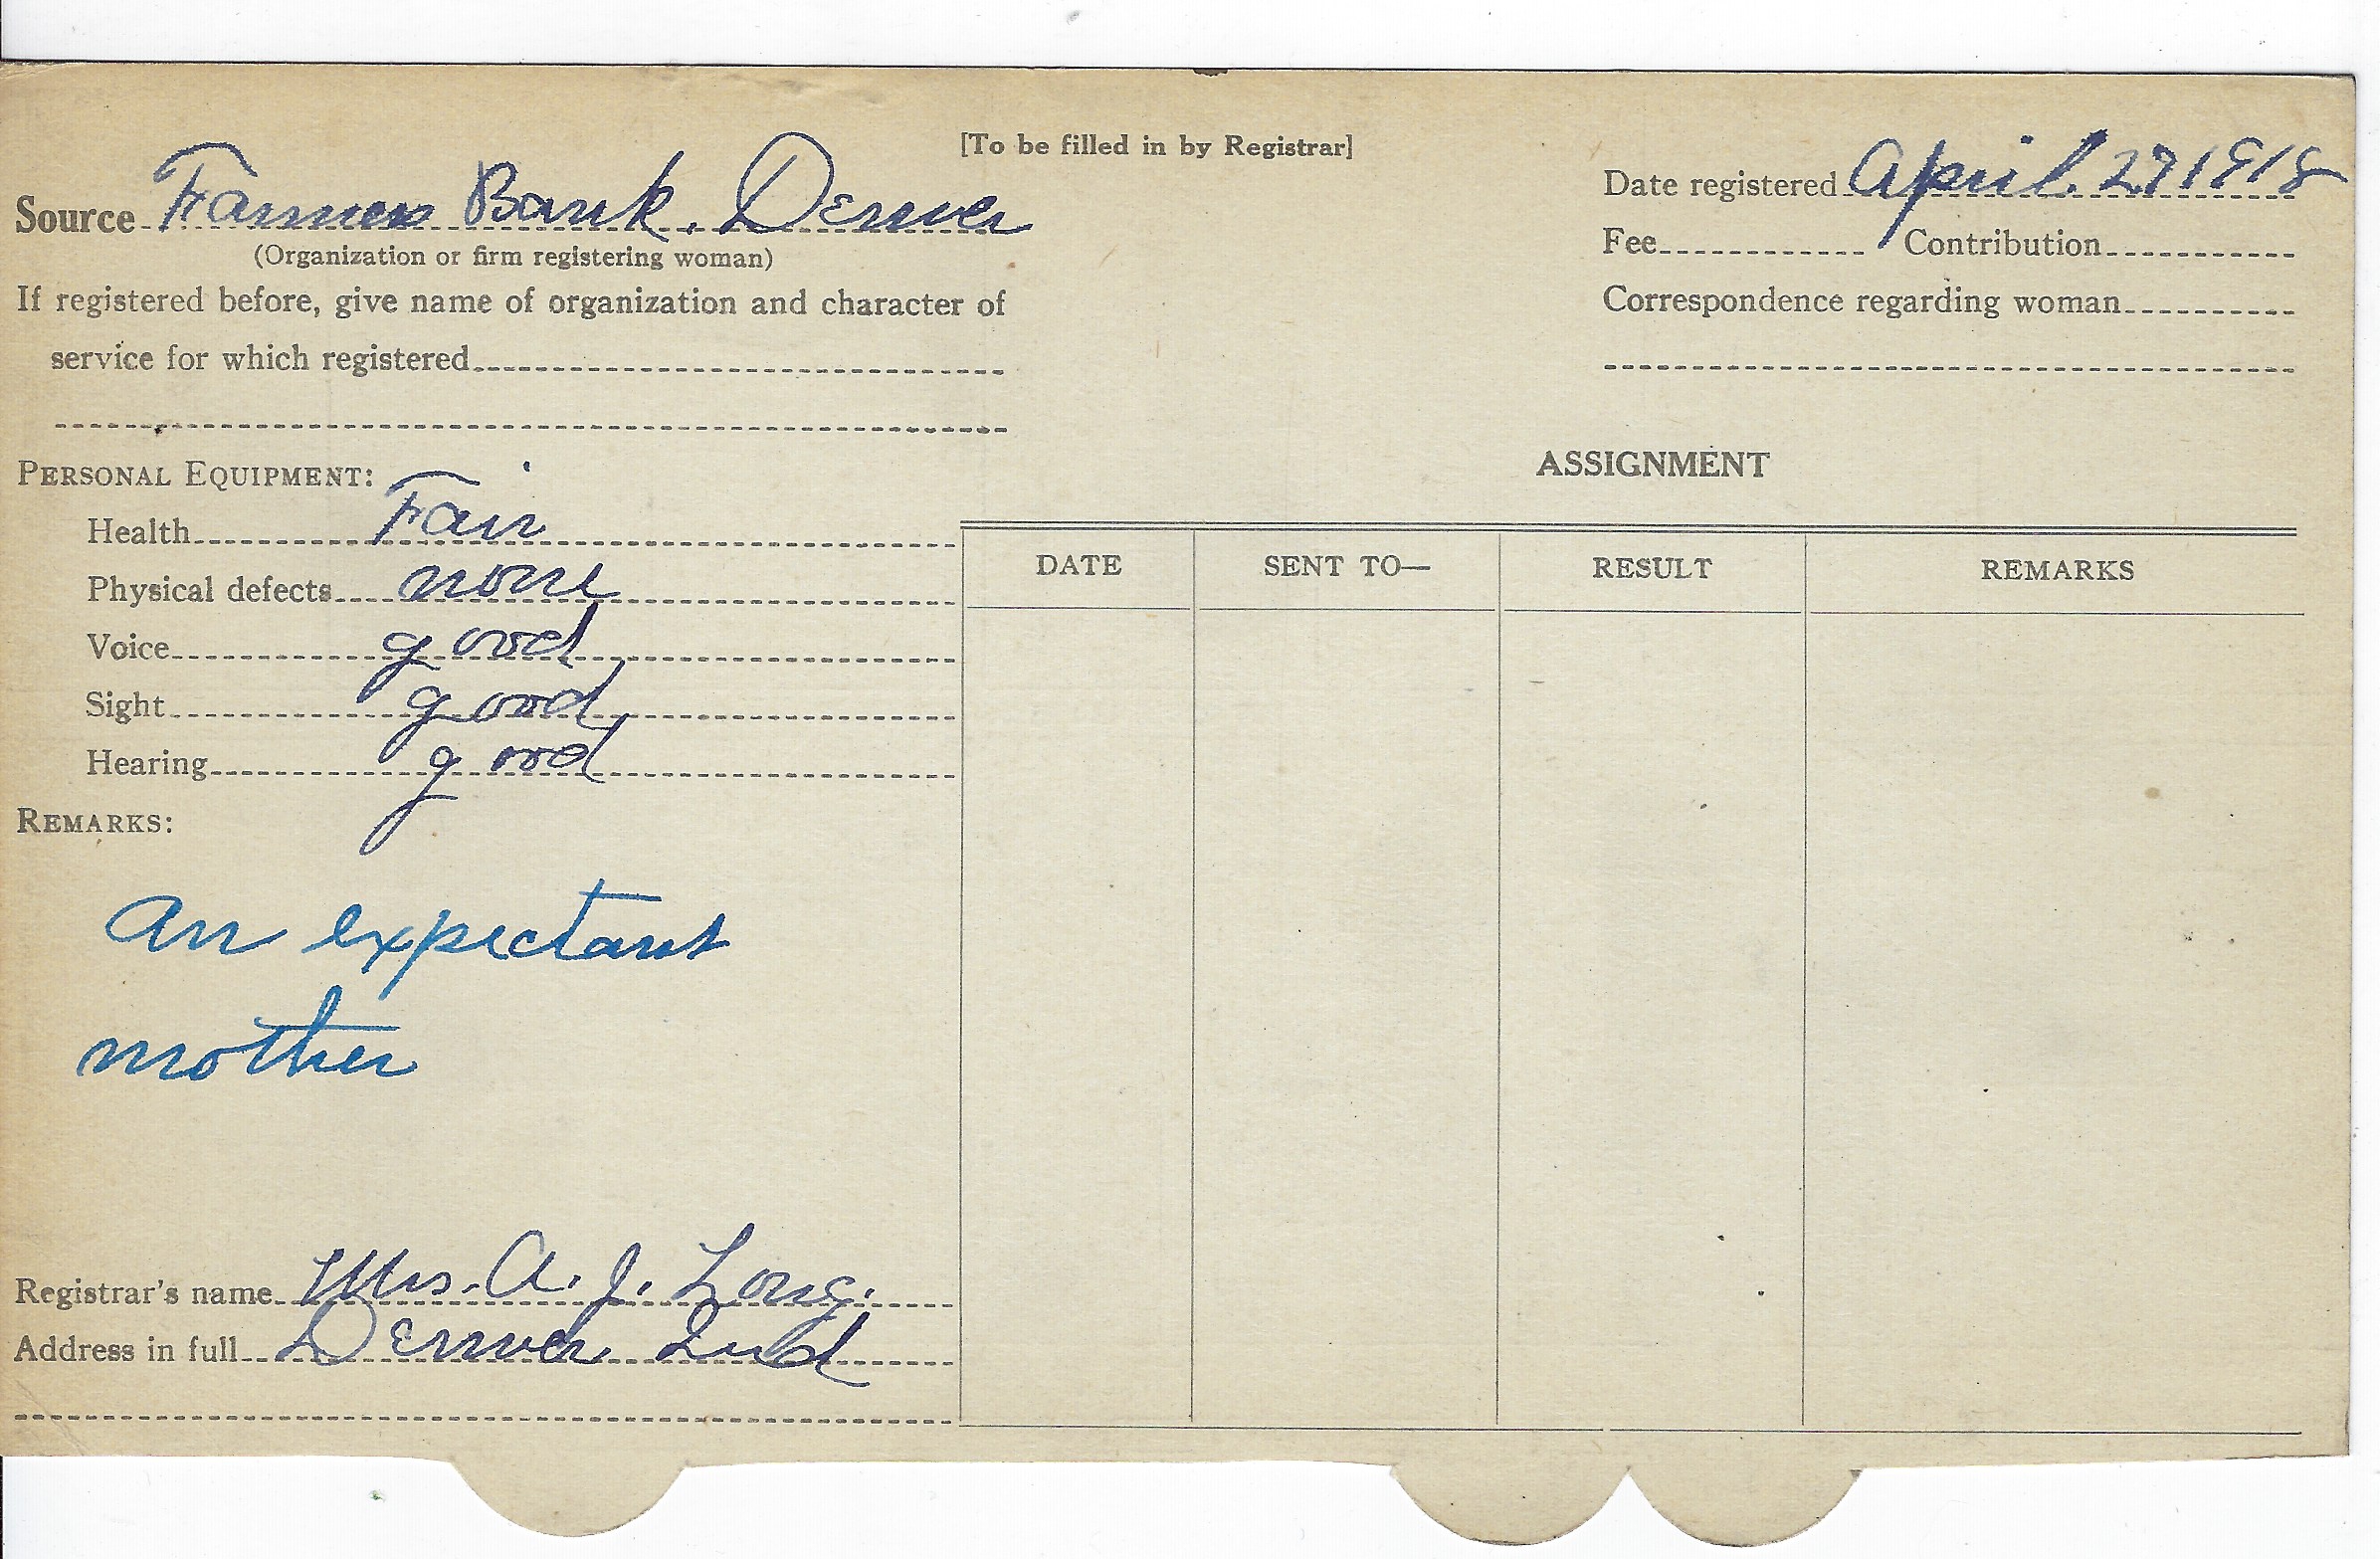 [To be filled in by Registrar]
Source Farmers Bank. Denver
(Organization or firm registering woman)
If registered before, give name of organization and character of
service for which registered
Date registered April. 27 1918
Fee Contribution
Correspondence regarding woman
PERSONAL EQUIPMENT:
Health Fair
Physical defects none
Voice good
Sight good
Hearing good
REMARKS:
An expectant
mother
Registrar's name Mrs. A. J. Long.
Address in full Denver. Ind
ASSIGNMENT
DATE SENT TO— RESULT REMARKS